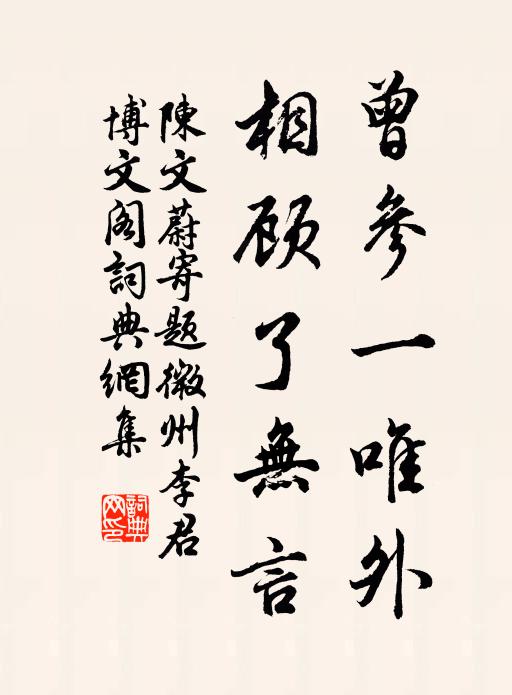 曾參一唯外
相顾了無言
陳文蔚寄題徽州李君
博文阁詞典網集
詞典
网印